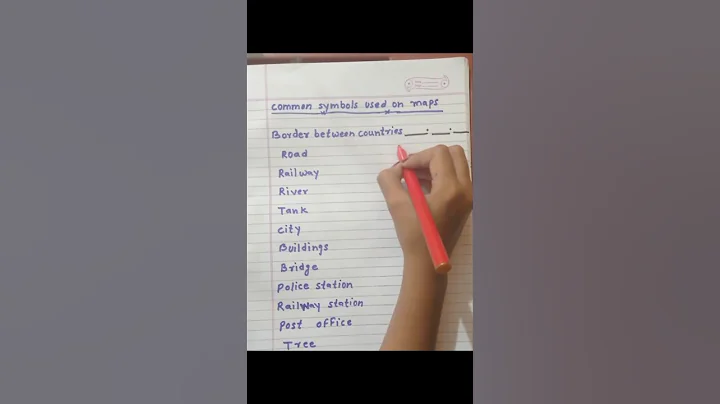 common symbols used on maps
Border between countries
Road
Railway
River
Tank
city
Buildings
Bridge
police station
Railway station
post office
Tree